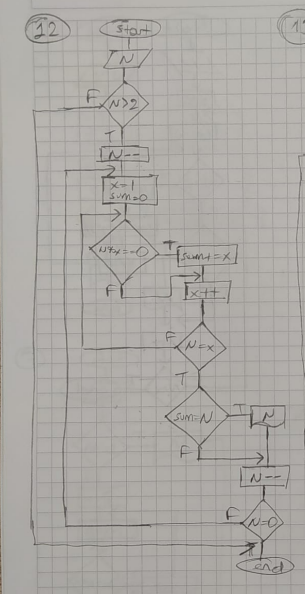 12
start
N
F
N>2
T
N--
x=1
sum=0
N%x==0
T
sum+=x
F
x++
F
N=x
T
sum=N
T
N
F
N--
F
N=0
end